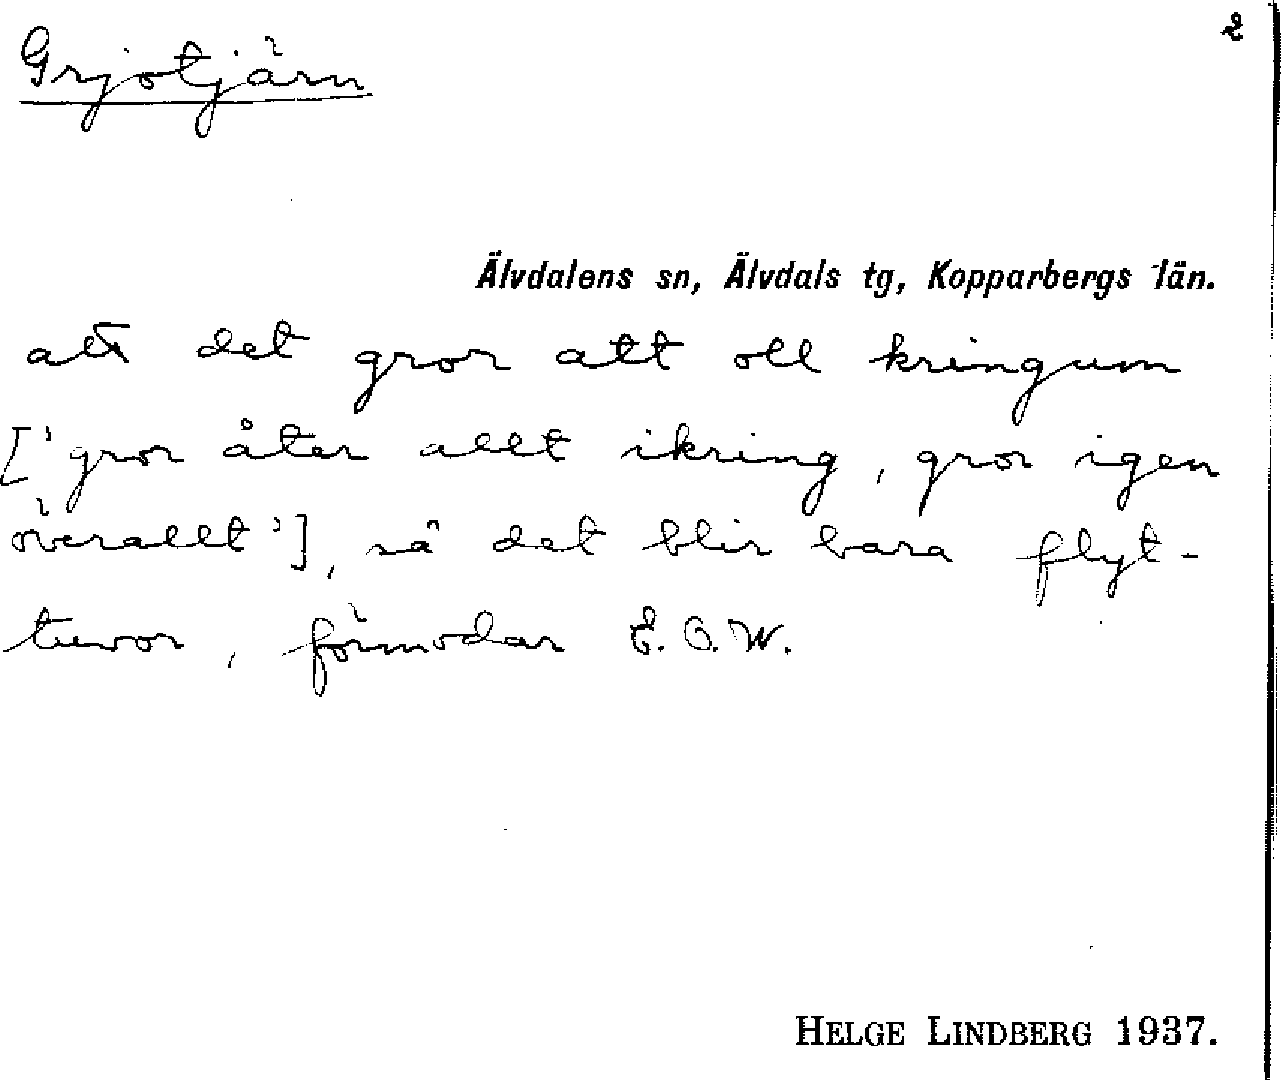 2
Grjotjärn
Älvdalens sn, Älvdals tg, Kopparbergs län.
att det gror att oll kringum
['gror åter allt ikring, gror igen
överallt'], så det blir bara flyt-
tuvor, förmodar E. O. W.
HELGE LINDBERG 1937.